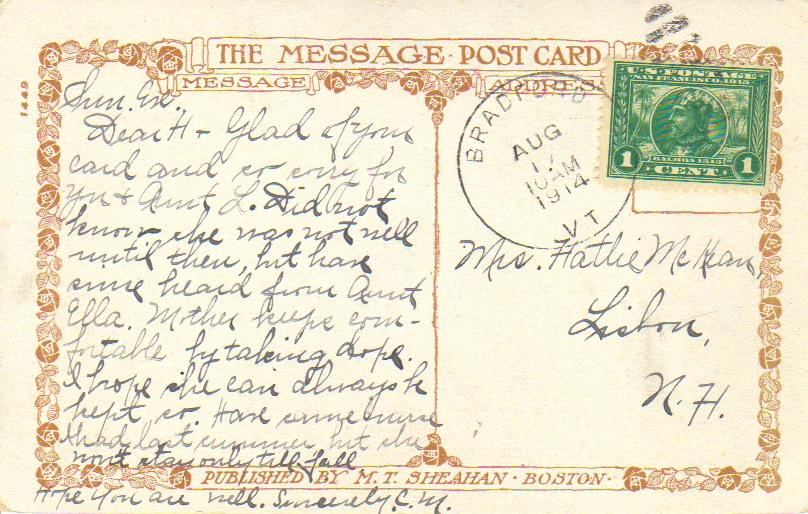 THE MESSAGE POST CARD
MESSAGE
ADDRES
1449
U.S. POSTAGE
SAN FRANCISCO 1915
BALBOA 1513
1 CENT 1
BRADFORD
AUG
17
10 AM
1914
VT
Sun. Eve.
Dear H - Glad of your
card and so sorry for
you & Aunt L. Did not
know she was not well
until then, but have
since heard from Aunt
Ella. Mother keeps com-
fortable by taking dope.
I hope she can always be
kept so. Have same nurse
I had last summer, but she
won't stay only till fall
Hope you are well. Sincerely, C.M.
Mrs. Hattie McKean,
Lisbon,
N.H.
PUBLISHED BY M. T. SHEAHAN · BOSTON ·